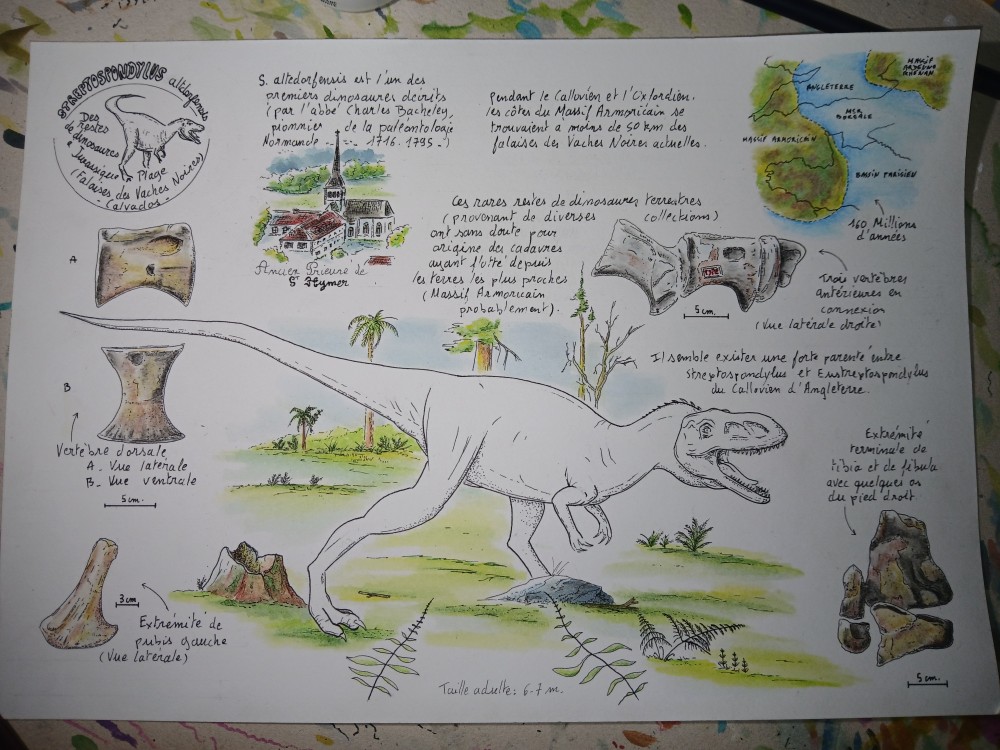 STREPTOSPONDYLUS altdorfensis
Des restes
de dinosaures
à Jurassique Plage
(Falaises des Vaches Noires)
- Calvados -
S. altdorfensis est l'un des
premiers dinosaures décrits
(par l'abbé Charles Bacheley,
pionnier de la paléontologie
Normande 1716-1795-)
Ancien Prieuré de
St Hymer
pendant le Callovien et l'Oxfordien.
les côtes du Massif Armoricain se
trouvaient à moins de 50 km des
falaises des Vaches Noires actuelles.
MASSIF
ARDENNO
RHENAN
ANGLETERRE
MER
BOREALE
MASSIF ARMORICAIN
BASSIN PARISIEN
160 Millions
d'années
Ces rares restes de dinosaures terrestres
(provenant de diverses collections)
ont sans doute pour
origine des cadavres
ayant flotté depuis
les terres les plus proches
(Massif Armoricain
probablement).
5cm.
Trois vertèbres
antérieures en
connexion
(Vue latérale droite)
Il semble exister une forte parenté entre
Streptospondylus et Eustreptospondylus
du Callovien d'Angleterre.
A
B
Vertèbre dorsale
A. Vue latérale
B. Vue ventrale
5cm.
Extrémité
terminale de
tibia et de fibula
avec quelques os
du pied droit
5cm.
3cm
Extrémité de
pubis gauche
(Vue latérale)
Taille adulte: 6-7 m.